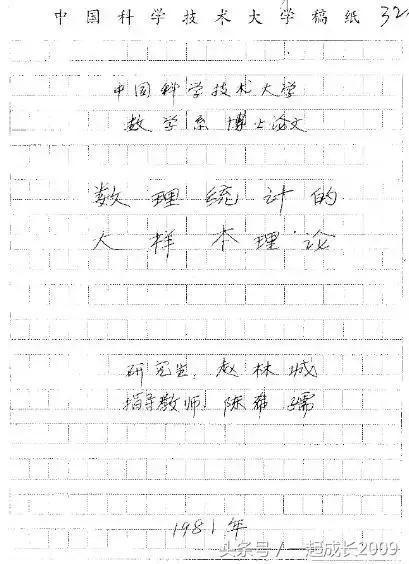 中国科学技术大学稿纸 32
中国科学技术大学
数学系 博士论文
数理统计的
大样本理论
研究生: 赵林城
指导教师: 陈希孺
1981年
头条号/一起成长2009